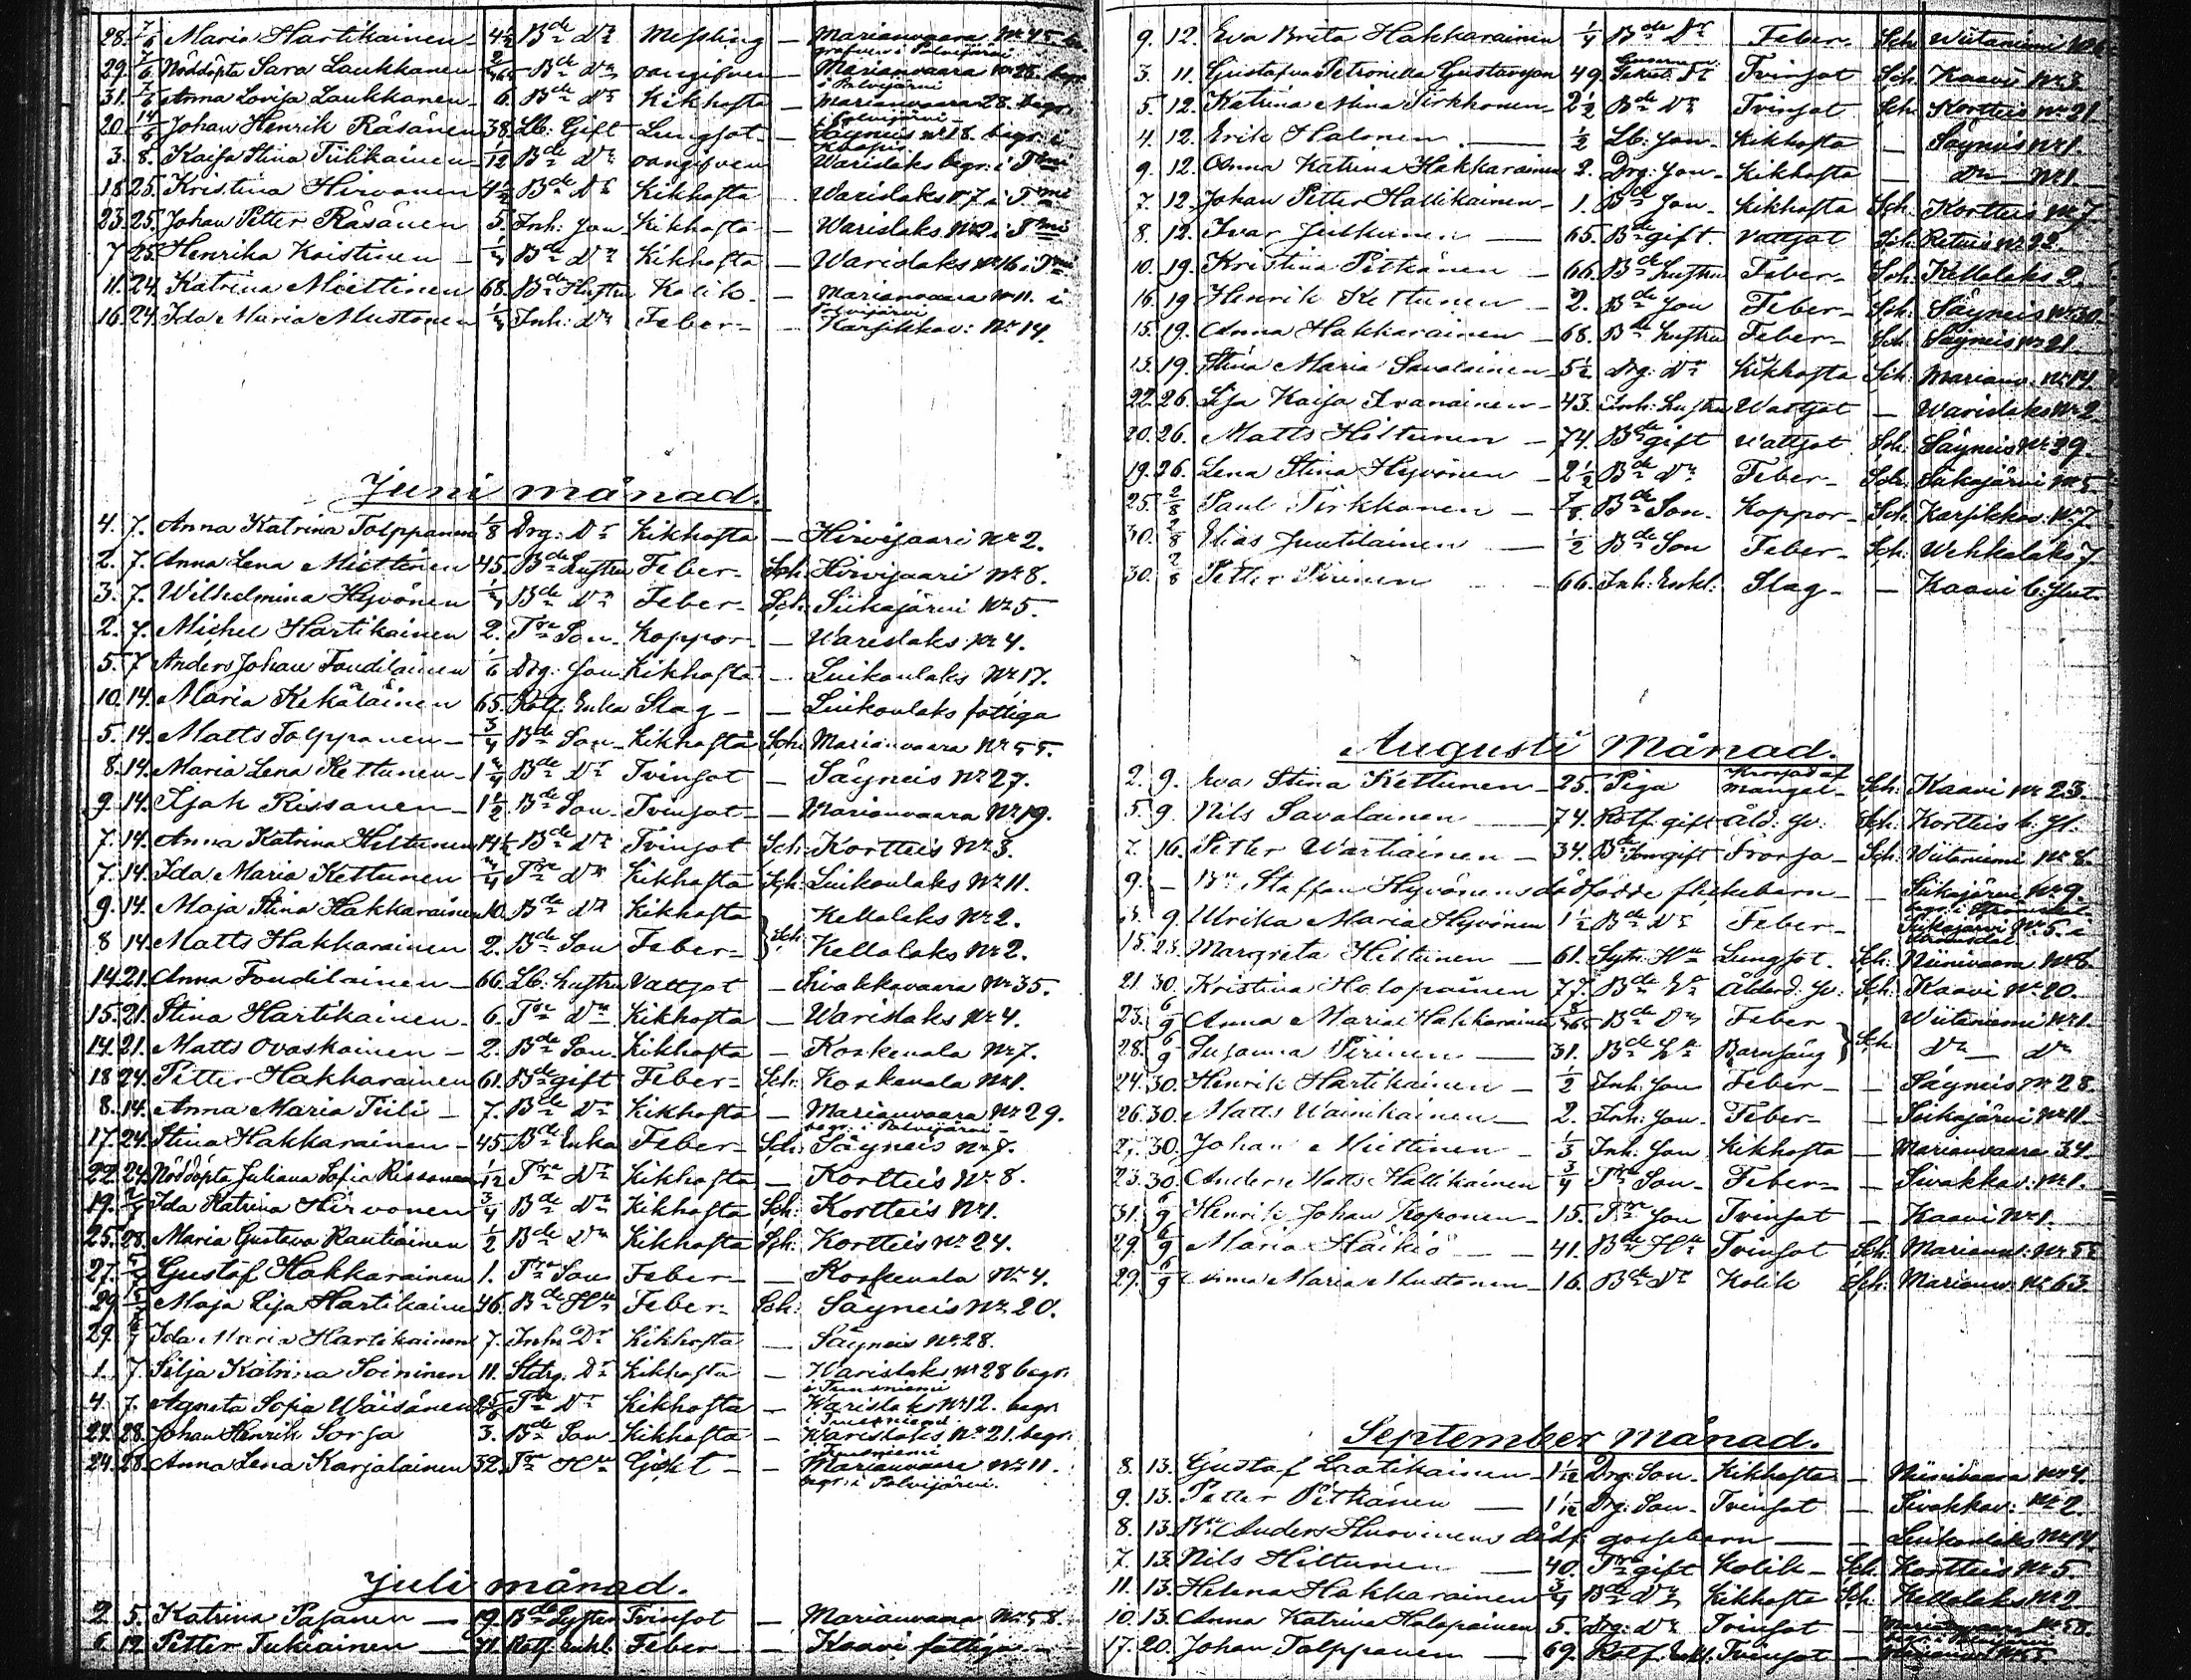 28. 7/6 Maria Hartikainen 4½ Bde Dr Messling — Marianvaara Nr 45. be-
grafven i Polvijärvi
29. 7/6 Nöddöpta Sara Laukkanen 2/365 Bde Dr oangifven — Marianvaara Nr 28. begr.
i Polvijärvi
31. 7/6 Anna Lovisa Laukkanen 6. Bde Dr Kikhosta — Marianvaara 28. begr.
i Polvijärvi
20. 14/6 Johan Henrik Räsänen 38. Lb: Gift Lungsot — Säyneis Nr 18. begr. i
Kuopio
3. 8. Kaisa Stina Tiilikainen 1/12 Bde Dr oangifven Varislaks begr. i Tmi
18. 25. Kristina Hirvonen 4½ Bde Dr Kikhosta Varislaks Nr 7. i Tmi
23. 25. Johan Petter Räsänen 5. Inh: Son Kikhosta — Varislaks Nr 2 i Tmi
7 25. Henrika Koistinen Bde Dr Kikhosta — Varislaks Nr 16. i Tmi
11. 24. Katrina Miettinen 68. Bde Hustru Kolik — Marianvaara Nr 11. i
Polvijärvi
16. 24. Ida Maria Mustonen Inh: Dr Feber — Karsikkov: Nr 14.
Juni månad.
4. 7. Anna Katrina Tolppanen 1/8 Drg: Dr Kikhosta — Hirvisaari Nr 2.
2. 7. Anna Lena Miettinen 45. Bde Hustru Feber — Sch. Hirvisaari Nr 8.
3. 7. Wilhelmina Hyvönen Bde Dr Feber — Sch. Siikajärvi Nr 5.
2. 7. Michel Hartikainen 2. Trp Son Koppor — Varislaks Nr 4.
5. 7 Anders Johan Toudilainen 1/6 Drg: Son Kikhosta — Luikonlaks Nr 17.
10. 14. Maria Kekäläinen 65. Rotf: Enka Slag — Luikonlaks fattiga
5. 14. Matts Tolppanen 3/4 Bde Son Kikhosta Sch. Marianvaara Nr 55.
8. 14. Maria Lena Kettunen 1 Bde Dr Tvinsot — Säyneis Nr 27.
9. 14. Isak Rissanen 1½ Bde Son Tvinsot — Marianvaara Nr 19.
7. 14. Anna Katrina Hiltunen 14½ Bde Dr Tvinsot Sch: Kortteis Nr 3.
7. 14. Ida Maria Kettunen Trp Dr Kikhosta Sch: Luikonlaks Nr 11.
9. 14. Maja Stina Hakkarainen 10. Bde Dr Kikhosta Kellolaks Nr 2.
8 14. Matts Hakkarainen 2. Bde Son Feber — Sch. Kellolaks Nr 2.
14. 21. Anna Toudilainen 66. Lb: hustru Vattsot — Sivakkavaara Nr 35.
15. 21. Stina Hartikainen 6. Trp Dr Kikhosta — Varislaks Nr 4.
14. 21. Matts Ovaskainen 2. Bde Son Kikhosta — Koskenala Nr 7.
18 24. Petter Hakkarainen 61. Bde gift Feber — Sch. Koskenala Nr 1.
8. 14. Anna Maria Tiili 7. Bde Dr Kikhosta — Marianvaara Nr 29.
begr. i Polvijärvi
17. 24. Stina Hakkarainen 45. Bde Enka Feber — Sch: Säyneis Nr 7.
22. 24. Nöddöpta Juliana Sofia Rissanen 1/12 Trp Dr Kikhosta — Kortteis Nr 8.
19. Ida Katrina Hirvonen 3/4 Bde Dr Kikhosta Sch: Kortteis Nr 1.
25. 28. Maria Gustava Rautiainen ½ Bde Dr Kikhosta Sch: Kortteis Nr 24.
27. Gustaf Hakkarainen 1. Trp Son Feber — Koskenala Nr 4.
29 Maja Lisa Hartikainen 46. Bde Hu Feber Sch: Säyneis Nr 20.
29. Ida Maria Hartikainen 7. Inh: Dr Kikhosta — Säyneis Nr 28.
1. 7. Silja Katrina Soininen 11. Statg. Dr Kikhosta — Varislaks Nr 28 begr.
i Tuusniemi
4. 7. Agneta Sofia Wäisänen Trp Dr Kikhosta — Varislaks Nr 12. begr.
i Tuusniemi
24. 28. Johan Henrik Sorsa 3. Bde Son Kikhosta — Varislaks Nr 21. begr.
i Tuusniemi
24. 28. Anna Lena Karjalainen 32. Trp Hu Gikt — Marianvaara Nr 11.
begr: i Polvijärvi.
Juli månad.
2. 5. Katrina Pasanen 19. Bde Syster Tvinsot — Marianvaara Nr 58.
6. 12. Petter Tukiainen 71. Rotf. Enkl. Feber — Kaavi fattiga
9. 12. Eva Brita Hakkarainen ¼ Bde Dr Feber Sch: Viitaniemi Nr
3. 11. Gustafva Petronella Gustavson 49. Dr Tvinsot Sch. Kaavi Nr 3
5. 12. Katrina Stina Pirkkonen 2½ Bde Dr Tvinsot Sch: Kortteis Nr 21
4. 12. Erik Halonen ½ Lb: Son Kikhosta — Säyneis Nr 1.
9. 12. Anna Katrina Hakkarainen 2. Drg: Son Kikhosta — Dr Nr 1.
7. 12. Johan Petter Hallikainen 1. Bde Son Kikhosta Sch: Kortteis Nr 7
8. 12. Ivar Juskunen 65. Bde gift. Vattsot Sch. Retuis Nr 22.
10. 19. Kristina Pitkänen 66. Bde hustru Feber — Sch. Kellolaks 2.
16. 19 Henrik Kettunen 2. Bde Son Feber — Sch: Säyneis Nr 30.
15. 19. Anna Hakkarainen 68. Bde hustru Feber — Sch: Säyneis Nr 21.
13. 19. Stina Maria Savolainen 5½ Drg: Dr Kikhosta Sch: Marianv. Nr 14.
22. 26. Lisa Kaisa Ivanainen 43. Inh: hustru Vattsot — Varislaks Nr 2
20. 26. Matts Hiltunen 74. Bde gift Vattsot Sch. Säyneis Nr 39.
19. 26. Lena Stina Hyvönen 2½ Bde Dr Feber — Sch: Siikajärvi Nr 5
25. 2/8 Paul Pirkkonen 7/8 Bde Son. Koppor — Sch. Karsikkov. Nr 7
30. 2/8 Elias Juutilainen ½ Bde Son Feber — Sch. Vehkalaks 7.
30. 2/8 Petter Pirinen 66. Inh: Enkl: Slag — Kaavi b: Hut.
Augusti Månad.
2. 9. Eva Stina Kettunen 25. Piga mangel Sch. Kaavi Nr 23.
5. 9 Nils Savolainen 74. Rotf. gift Åld: sv: Sch: Kortteis b. H.
7. 16. Petter Wartiainen 34. Bde Son gift Frossa — Sch: Viitaniemi Nr 8.
9. — Bn Staffan Hyvönens dödfödde flickebarn — Siikajärvi Nr 9.
9. Ulrika Maria Hyvönen 1½ Bde Dr Feber — Siikajärvi Nr 5. i
15. 23. Margreta Hiltunen 61. Sytn: Hu Lungsot. Sch: Niinivaara Nr 8.
21. 30. Kristina Holopainen 77. Bde Ålderd: sv: Sch: Kaavi Nr 20.
23. 6/9 Anna Maria Hakkarainen Bde Dr Feber Viitaniemi Nr 1.
28. 6/9 Susanna Pirinen 31. Bde Barnsäng Sch Dr — Dr
24. 30. Henrik Hartikainen ½ Inh: Son Feber — Säyneis Nr 28.
26. 30. Matts Wainikainen 2. Inh: Son Feber — Siikajärvi Nr 11.
27. 30. Johan Miettinen 1/3 Inh: Son Kikhosta — Marianvaara 34.
23. 30. Anders Matts Hallikainen 3/4 Trp Son Feber — Sivakkav: Nr 1.
31. 6/9 Henrik Johan Koponen 15. Trp Son Tvinsot — Kaavi Nr 1.
29. 6/9 Maria Haikiö 41. Bde Hu Tvinsot Sch Marianv: Nr
29. 6/9 Anna Maria Mustonen 16. Bde Dr Kolik Sch: Marianv. Nr 63.
September Månad.
8. 13. Gustaf Laatikainen 1½ Drg: Son Kikhosta — Niinivaara Nr 4.
9. 13. Petter Pitkänen 1 1/12 Drg: Son Tvinsot — Sivakkav: Nr 2.
8. 13. Bn Anders Huovinens dödf: gossebarn — Luikonlaks Nr 14.
7. 13. Nils Hiltunen 40. Trp gift Kolik — Sch. Kortteis Nr 5.
11. 13. Helena Hakkarainen 3/4 Bde Dr Kikhosta Sch. Kellolaks Nr 2
10. 13. Anna Katrina Holopainen 5. Drg: Dr Tvinsot — Nr 58.
17. 20. Johan Tolppanen 69. Rotf. Enkl. Tvinsot